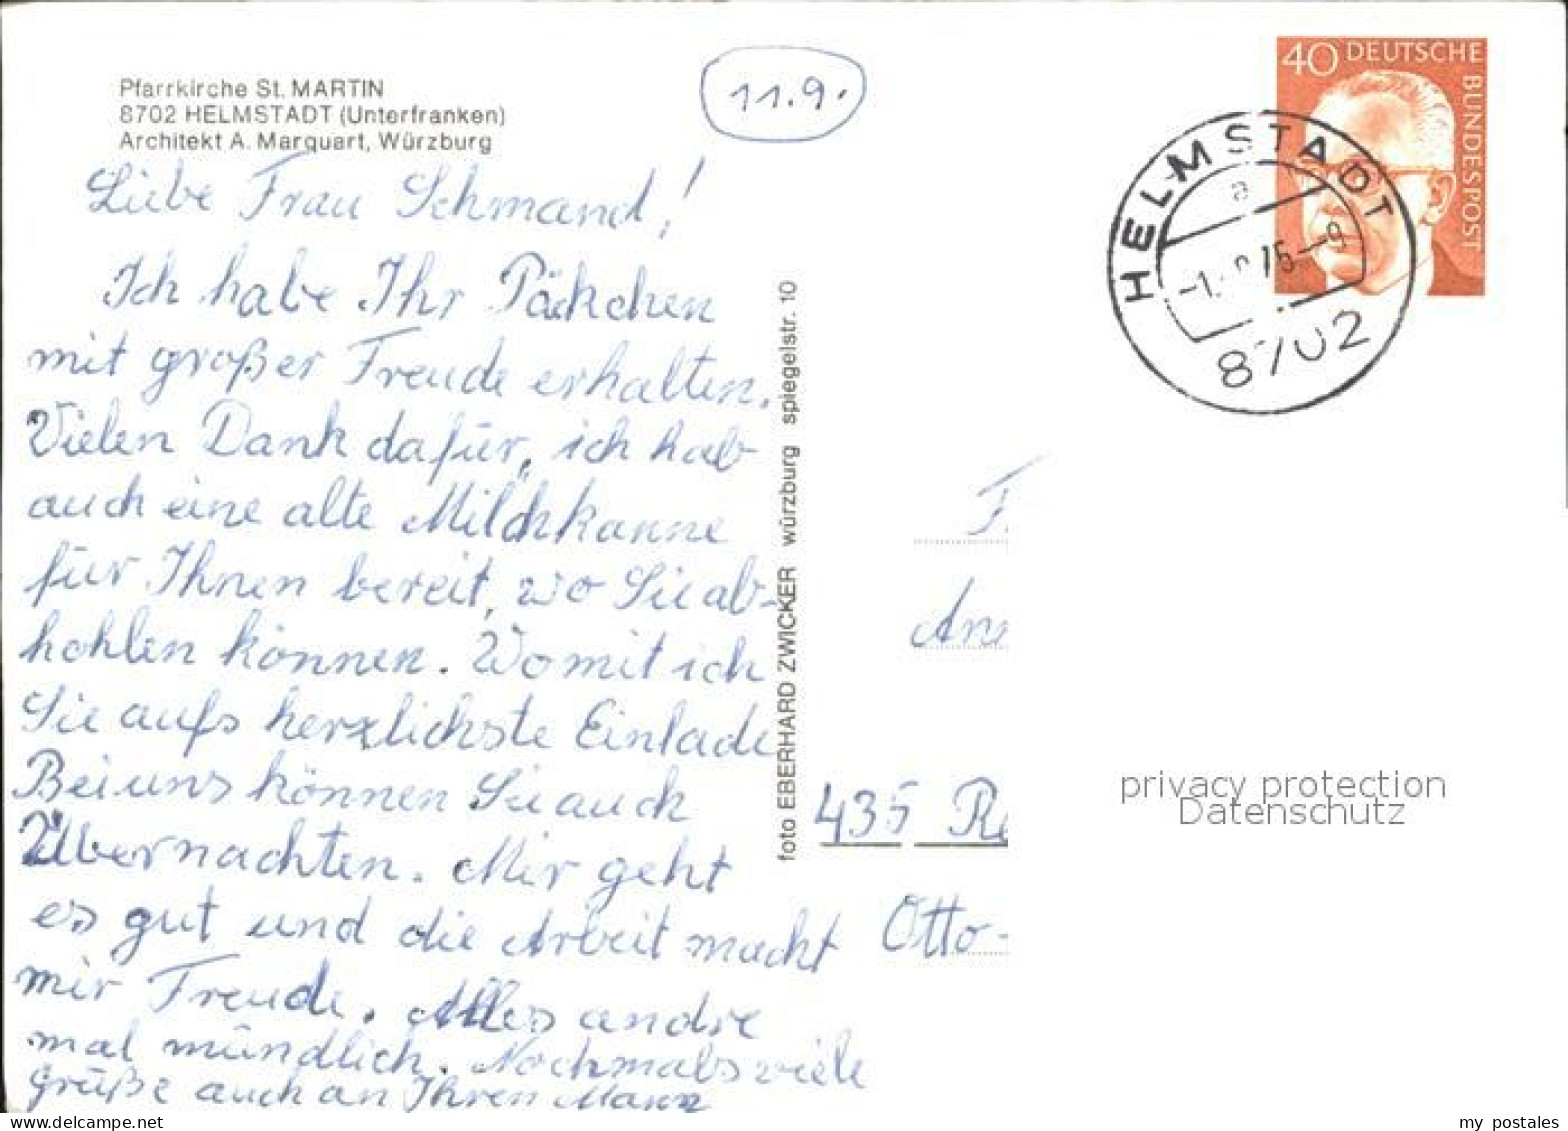 Pfarrkirche St. MARTIN
8702 HELMSTADT (Unterfranken)
Architekt A. Marquart, Würzburg
11.9.
Liebe Frau Schmand!
Ich habe Ihr Päckchen
mit großer Freude erhalten.
Vielen Dank dafür, ich hab
auch eine alte Milchkanne
für Ihnen bereit, wo Sie ab-
hohlen können. Womit ich
Sie aufs herzlichste Einlade
Bei uns können Sie auch
Übernachten. Mir geht
es gut und die Arbeit macht
mir Freude. Alles andre
mal mündlich. Nochmals viele
Grüße auch an Ihren Mann
foto EBERHARD ZWICKER würzburg spiegelstr. 10
40 DEUTSCHE
BUNDESPOST
HELMSTADT
a
8702
F.
An
435 Re
Otto-
privacy protection
Datenschutz
www.delcampe.net
my_postales